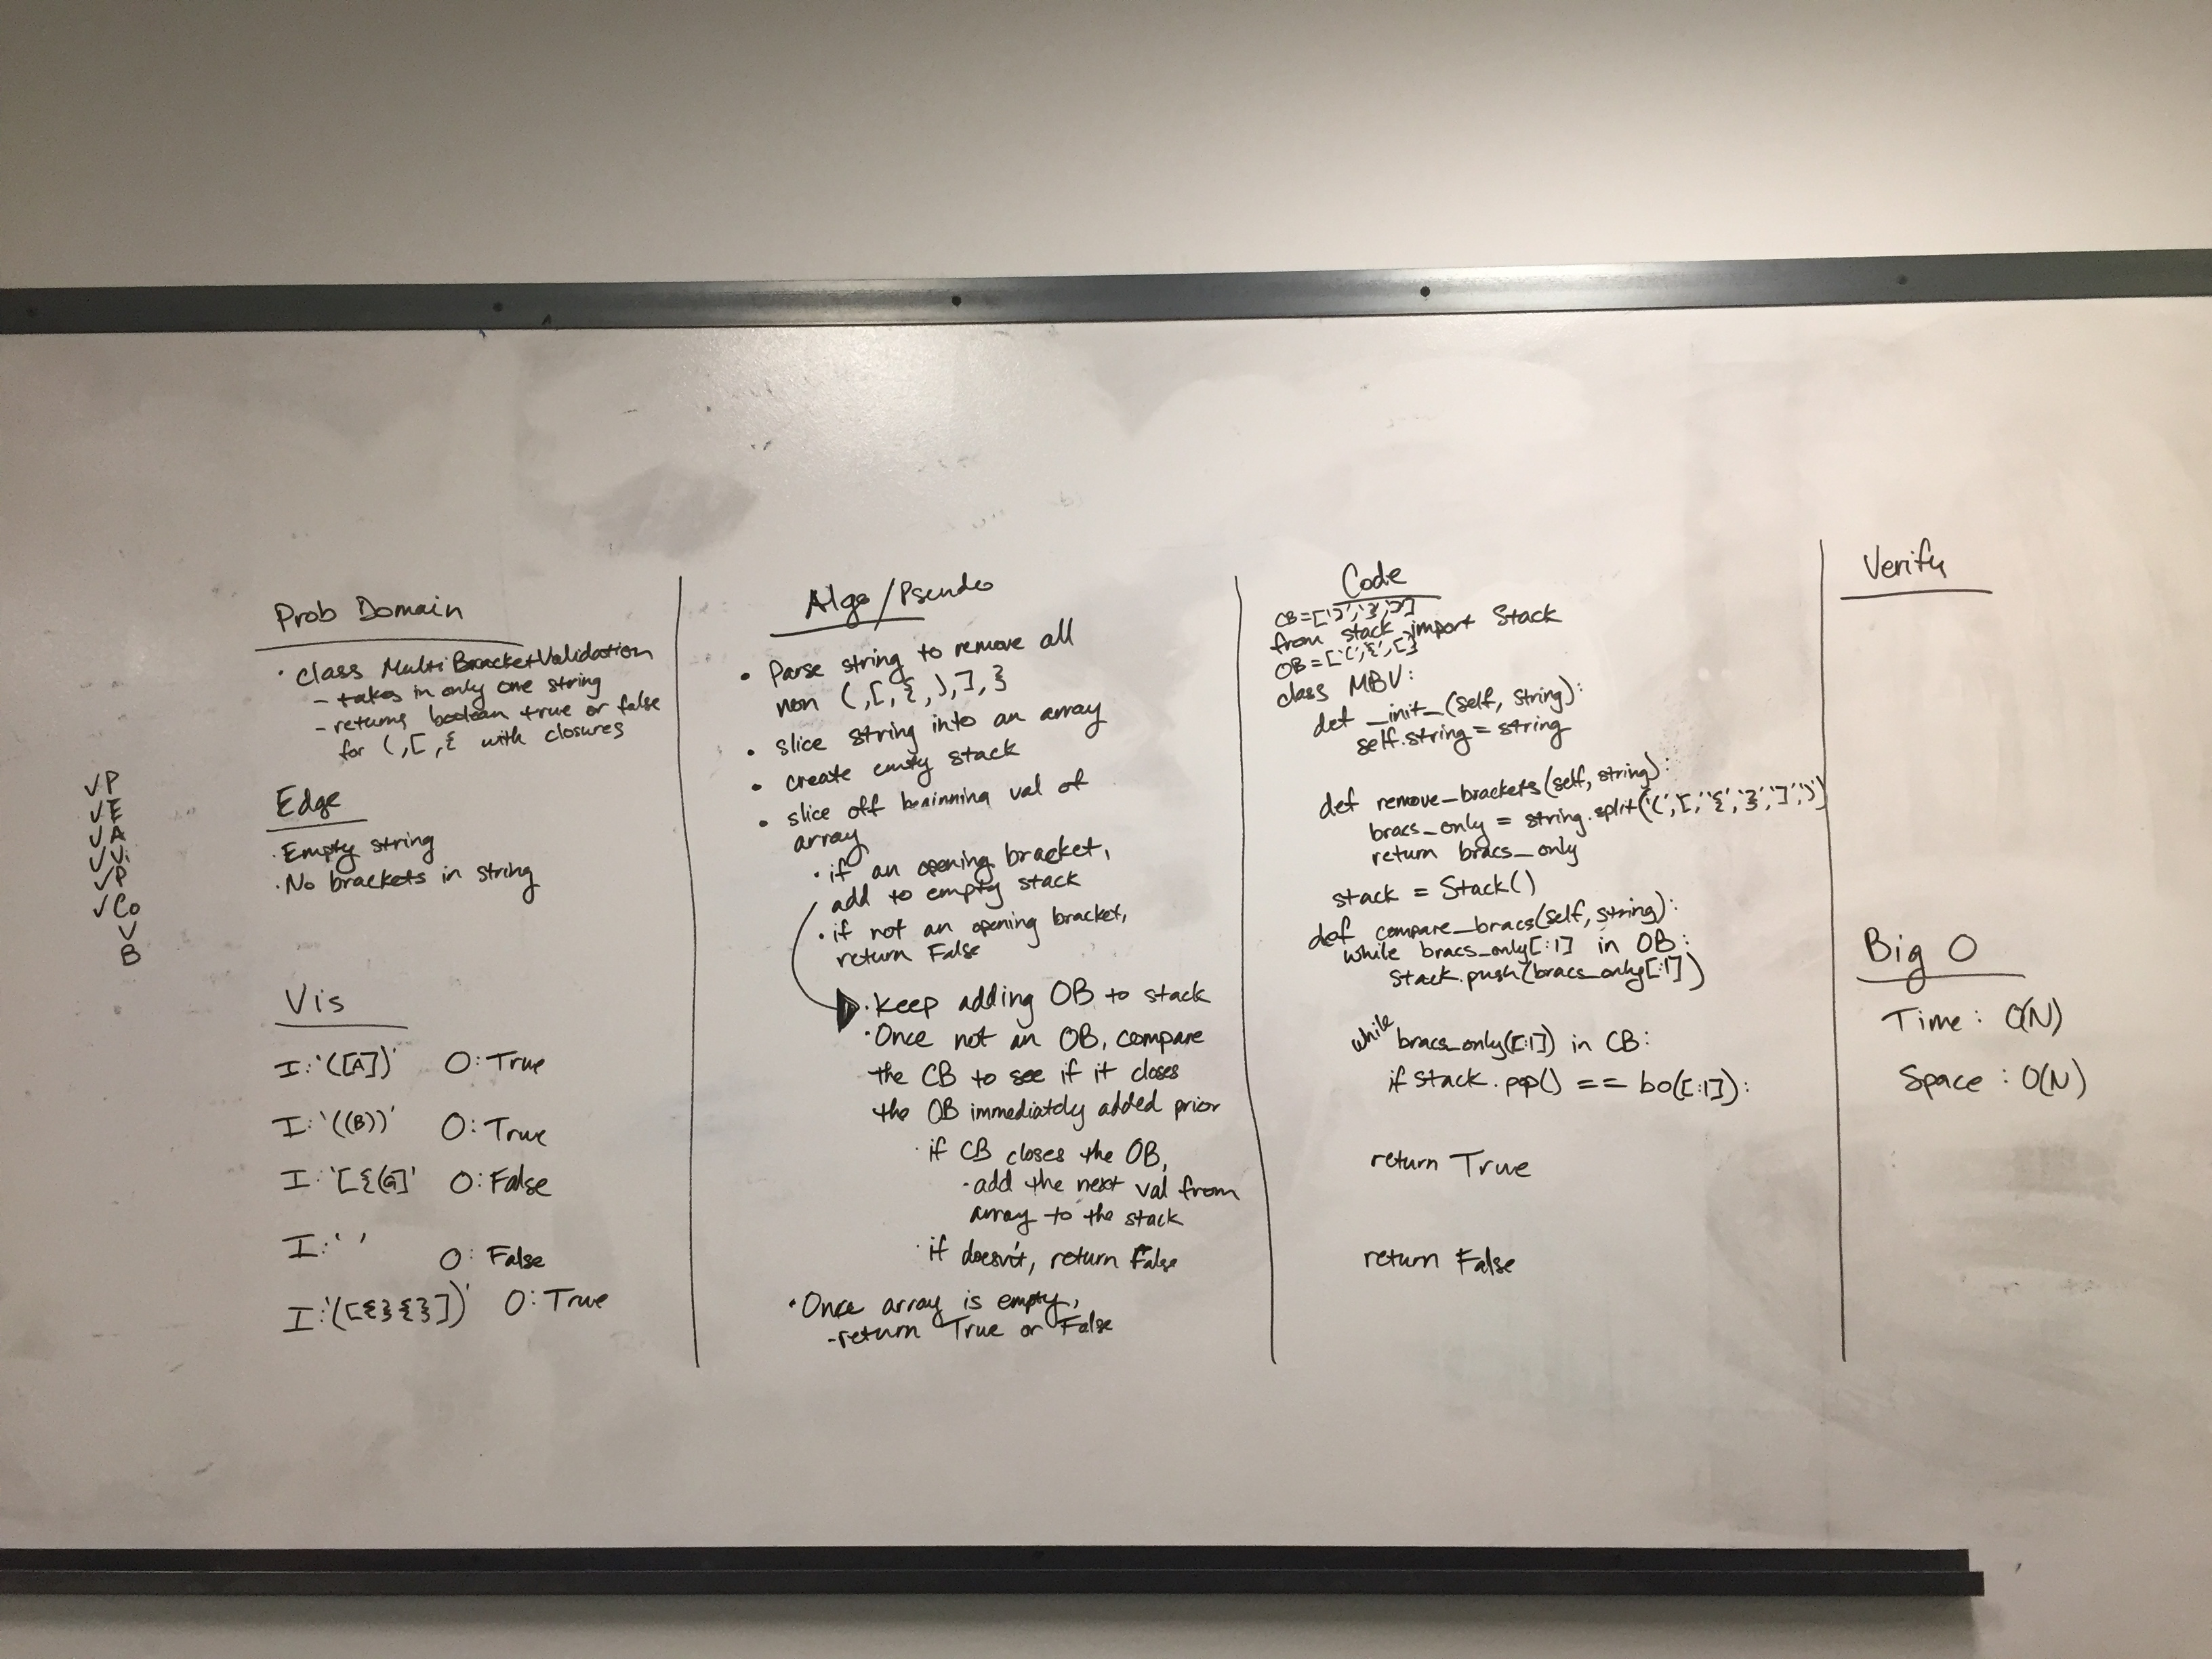 ✓P
✓E
✓A
✓Vi
✓P
✓Co
V
B
Prob Domain
· class MultiBracketValidation
- takes in only one string
- returns boolean true or false
for (, [, { with closures
Edge
· Empty string
· No brackets in string
Vis
I: '([A])' O: True
I: '((B))' O: True
I: '[{(G]' O: False
I: ' ' O: False
I: '([{}{}])' O: True
Algo/Pseudo
• Parse string to remove all
non (, [, {, ), ], }
• slice string into an array
• create empty stack
• slice off beginning val of
array
· if an opening bracket,
add to empty stack
· if not an opening bracket,
return False
· Keep adding OB to stack
· Once not an OB, compare
the CB to see if it closes
the OB immediately added prior
· if CB closes the OB,
· add the next val from
array to the stack
· if doesn't, return False
· Once array is empty,
- return True or False
Code
CB = [')', '}', ']']
from stack import Stack
OB = ['(', '{', [']
class MBV:
def _init_(self, string):
self.string = string
def remove_brackets(self, string):
bracs_only = string.split('(', '[', '{', '}', ']', ')')
return bracs_only
stack = Stack()
def compare_bracs(self, string):
while bracs_only[:1] in OB:
stack.push(bracs_only[:1])
while bracs_only([:1]) in CB:
if stack.pop() == bo([:1]):
return True
return False
Verify
Big O
Time: O(N)
Space: O(N)